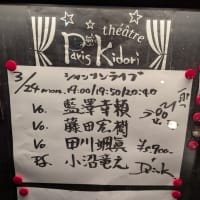 théâtre
Paris Kidori
シャンソンライブ
3/24 mon. 19:00/19:50/20:40
Vo. 藍澤幸頼
Vo. 藤田宏樹
Vo. 田川颯眞 ¥5,900.
小沼竜之